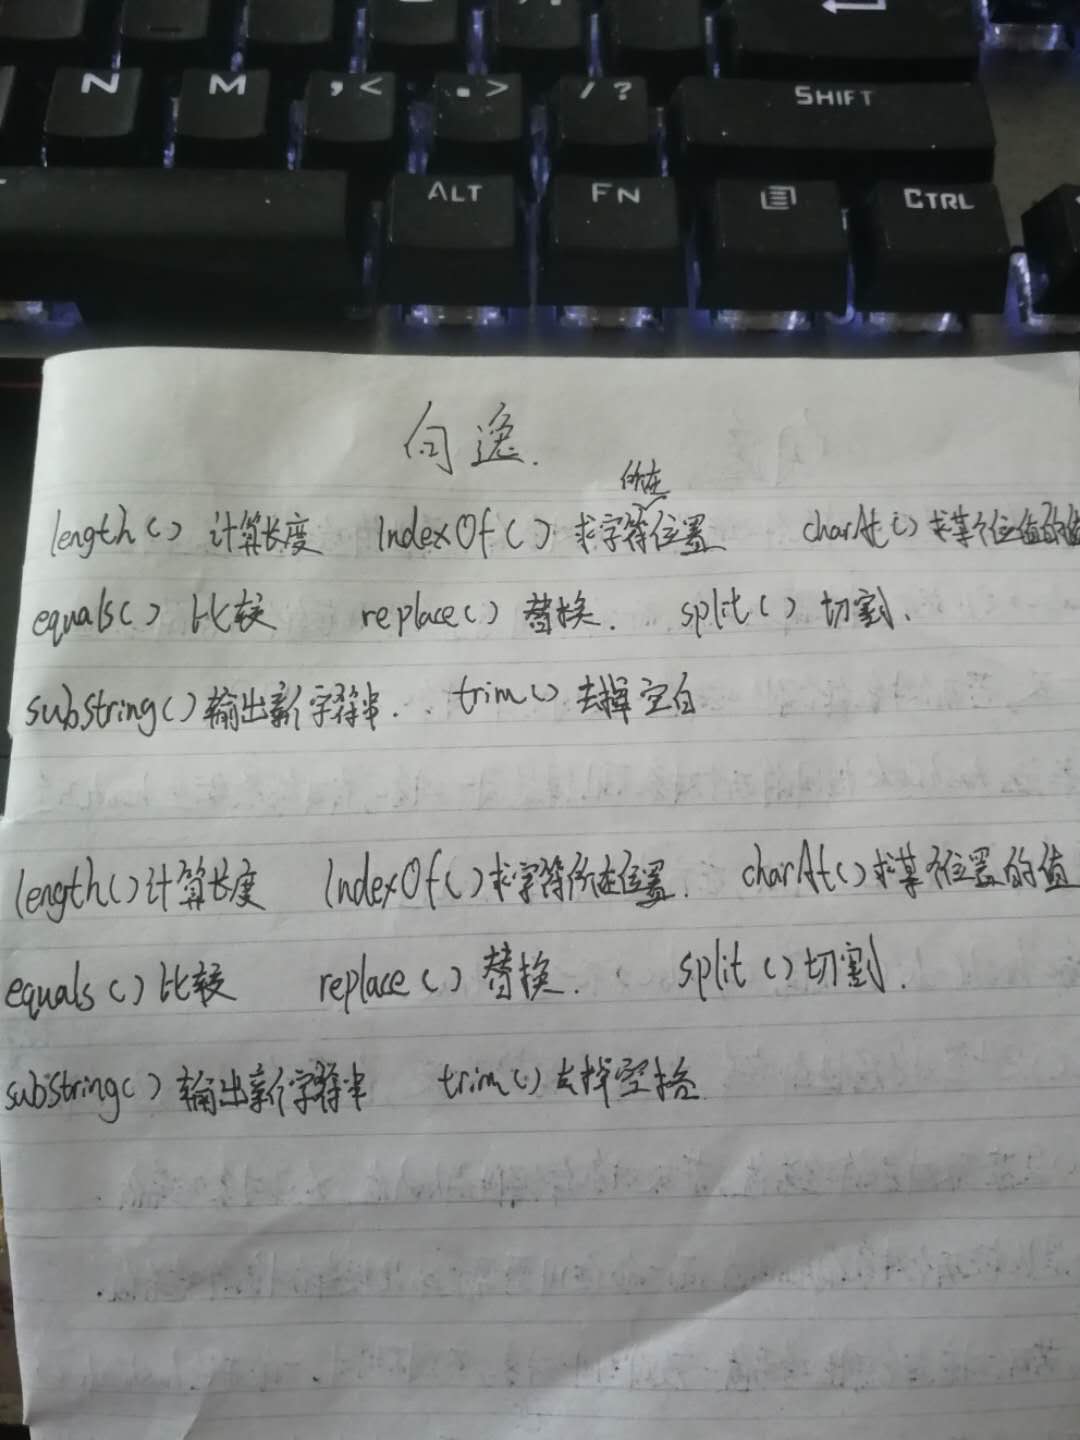 N M , < . > / ? SHIFT
ALT FN CTRL
向逸.
所在
length() 计算长度 IndexOf() 求字符位置 charAt() 求某个位值的值
equals() 比较 replace() 替换. split() 切割.
substring() 输出新字符串. trim() 去掉空白
length() 计算长度 IndexOf() 求字符所在位置. charAt() 求某个位置的值
equals() 比较 replace() 替换. split() 切割.
substring() 输出新字符串 trim() 去掉空格.